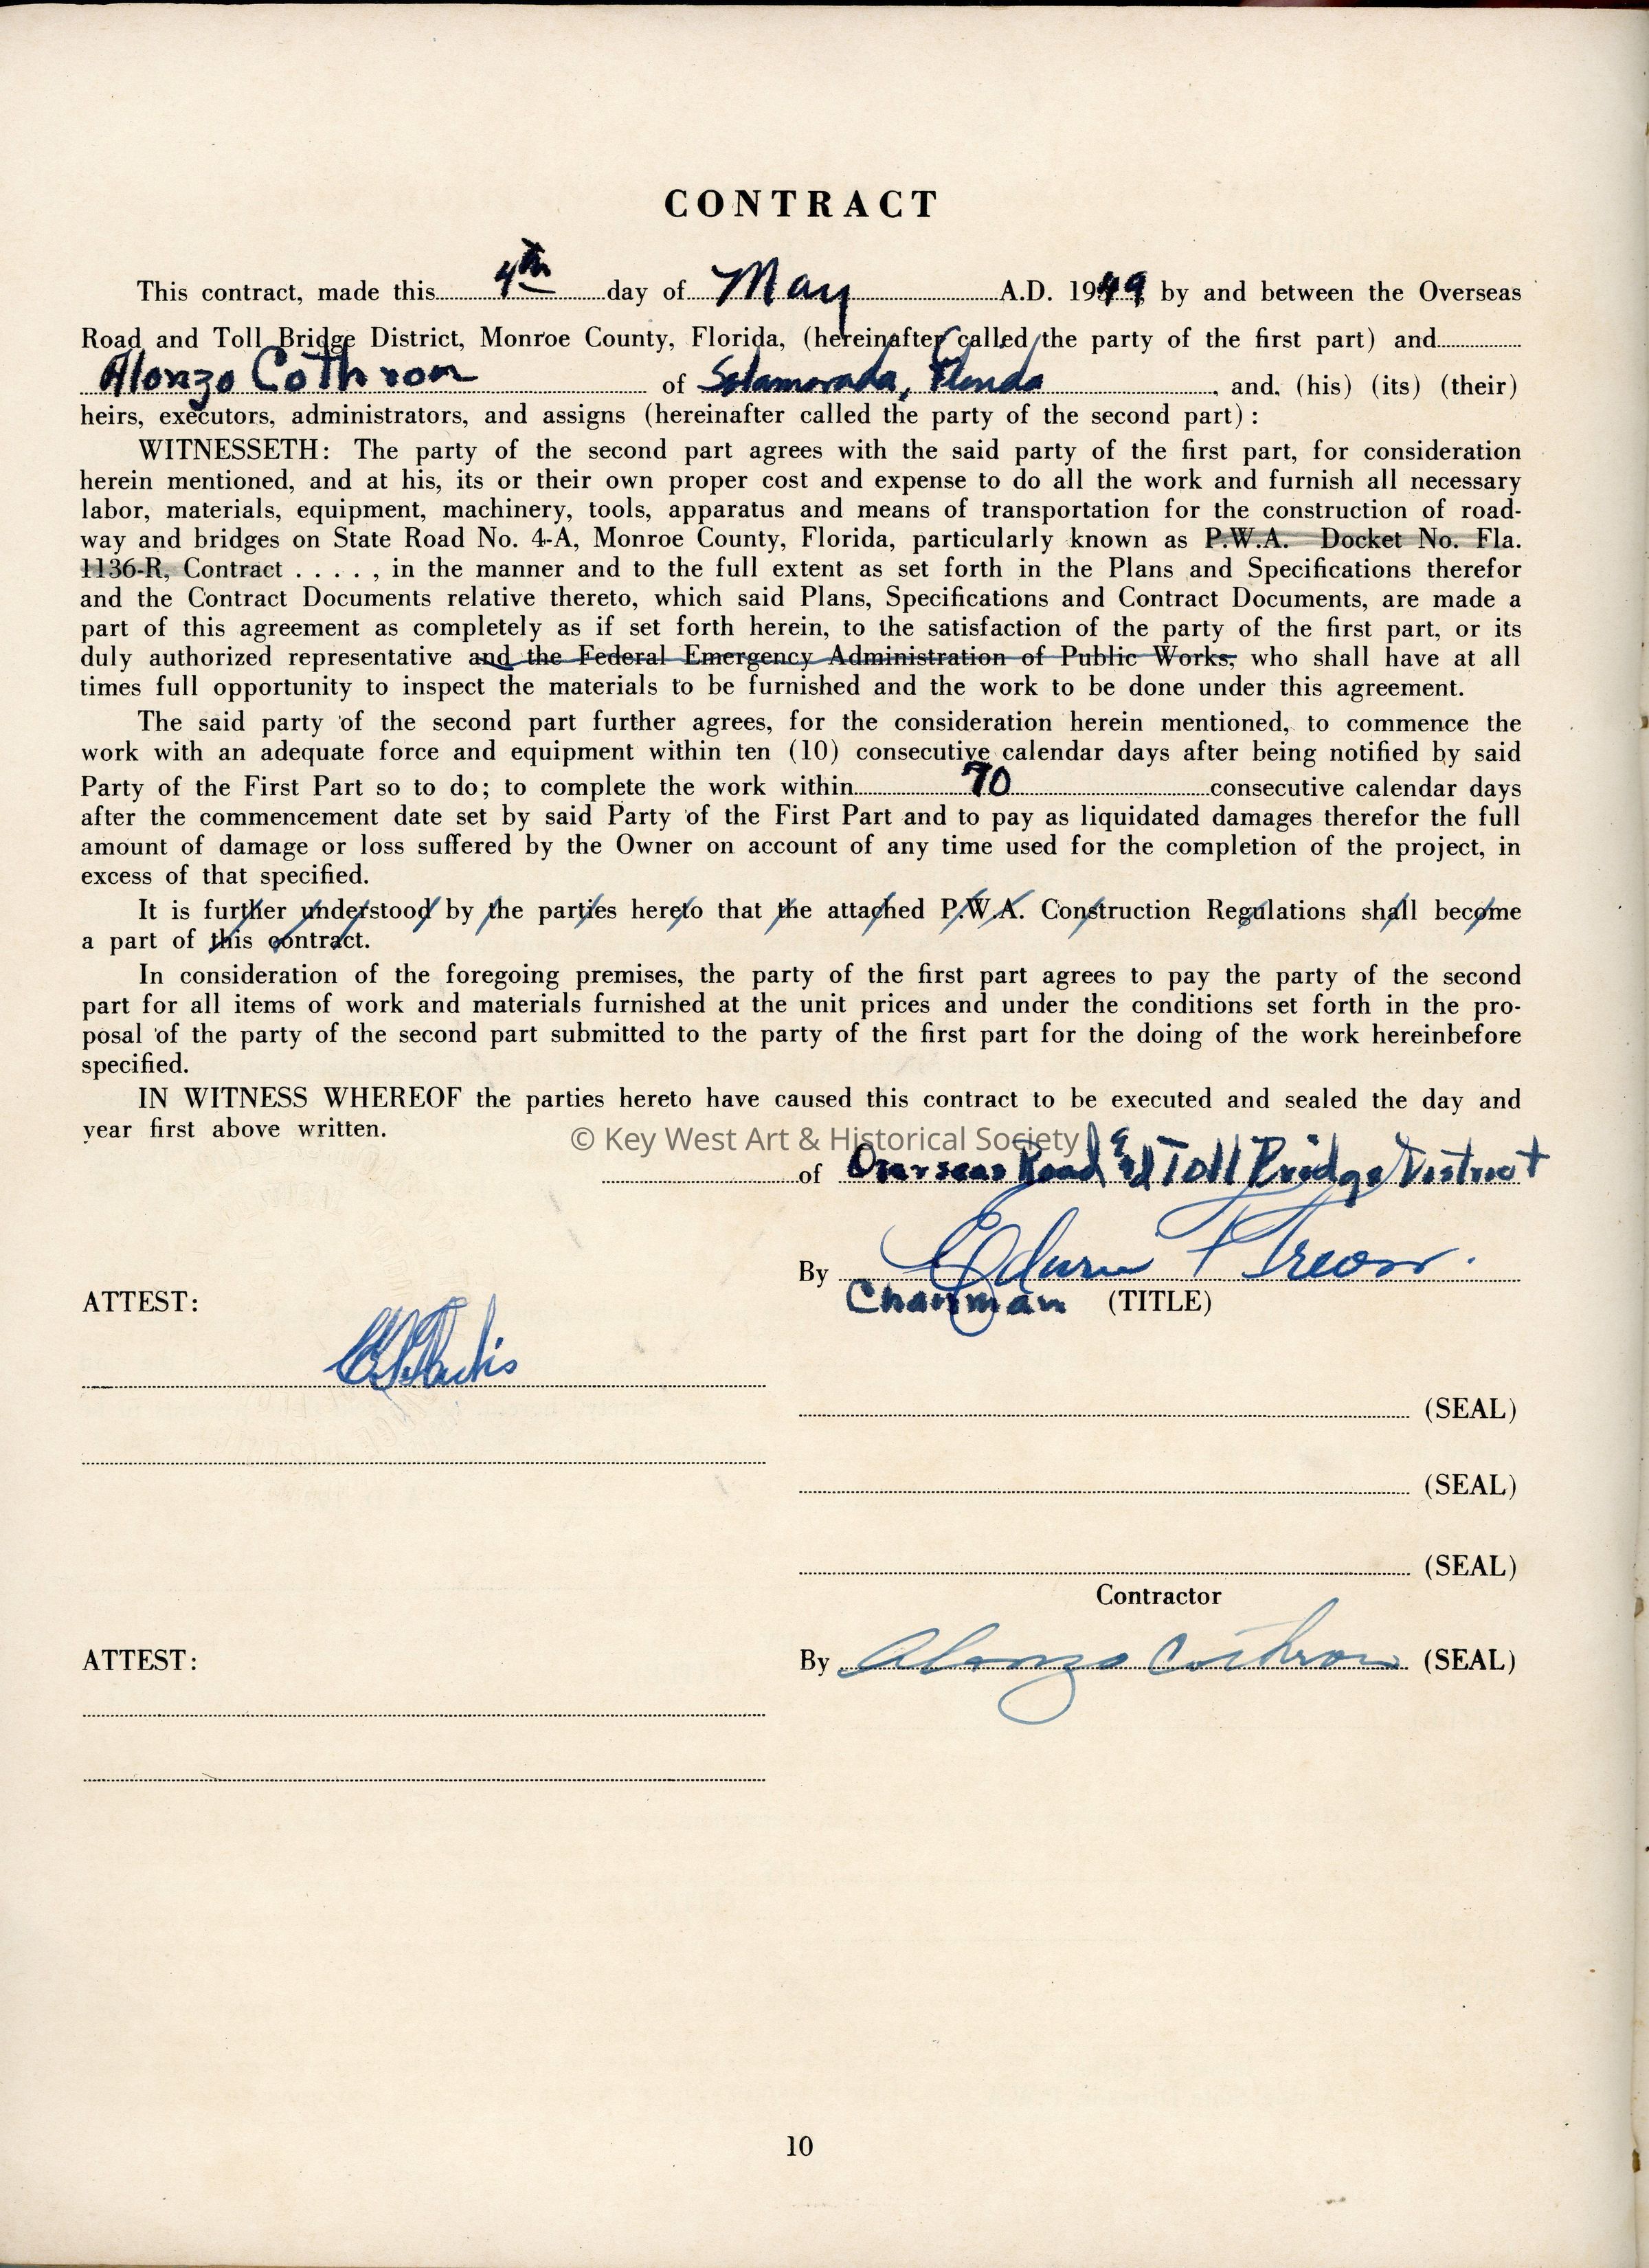 CONTRACT
This contract, made this 4th day of May A.D. 1949, by and between the Overseas
Road and Toll Bridge District, Monroe County, Florida, (hereinafter called the party of the first part) and
Alonzo Cothron of Islamorada, Florida, and, (his) (its) (their)
heirs, executors, administrators, and assigns (hereinafter called the party of the second part) :
WITNESSETH: The party of the second part agrees with the said party of the first part, for consideration
herein mentioned, and at his, its or their own proper cost and expense to do all the work and furnish all necessary
labor, materials, equipment, machinery, tools, apparatus and means of transportation for the construction of road-
way and bridges on State Road No. 4-A, Monroe County, Florida, particularly known as P.W.A. Docket No. Fla.
1136-R, Contract . . . . , in the manner and to the full extent as set forth in the Plans and Specifications therefor
and the Contract Documents relative thereto, which said Plans, Specifications and Contract Documents, are made a
part of this agreement as completely as if set forth herein, to the satisfaction of the party of the first part, or its
duly authorized representative and the Federal Emergency Administration of Public Works, who shall have at all
times full opportunity to inspect the materials to be furnished and the work to be done under this agreement.
The said party of the second part further agrees, for the consideration herein mentioned, to commence the
work with an adequate force and equipment within ten (10) consecutive calendar days after being notified by said
Party of the First Part so to do; to complete the work within 70 consecutive calendar days
after the commencement date set by said Party of the First Part and to pay as liquidated damages therefor the full
amount of damage or loss suffered by the Owner on account of any time used for the completion of the project, in
excess of that specified.
It is further understood by the parties hereto that the attached P.W.A. Construction Regulations shall become
a part of this contract.
In consideration of the foregoing premises, the party of the first part agrees to pay the party of the second
part for all items of work and materials furnished at the unit prices and under the conditions set forth in the pro-
posal of the party of the second part submitted to the party of the first part for the doing of the work hereinbefore
specified.
IN WITNESS WHEREOF the parties hereto have caused this contract to be executed and sealed the day and
year first above written.
© Key West Art & Historical Society
of Overseas Road and Toll Bridge District
By
Chairman (TITLE)
ATTEST:
(SEAL)
(SEAL)
(SEAL)
Contractor
ATTEST:
By Alonzo Cothron (SEAL)
10